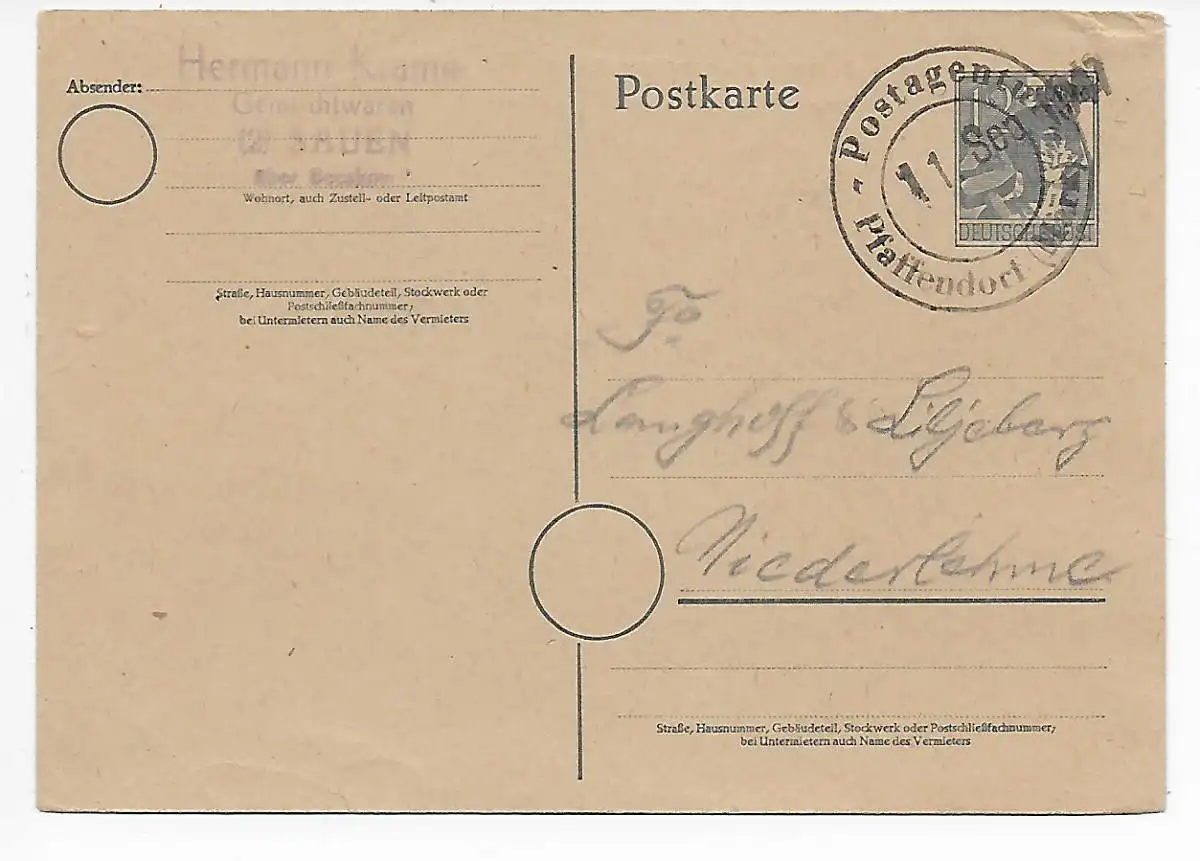 Hermann
Absender:
Gemischtwaren
(2) SAUEN
über
Wohnort, auch Zustell- oder Leitpostamt
Straße, Hausnummer, Gebäudeteil, Stockwerk oder
Postschließfachnummer;
bei Untermietern auch Name des Vermieters
Postkarte
- Postagentur
11. Sep.
Pfaffendorf
12
DEUTSCHE POST
Fa.
Langhoff & Liljeberg
Niederlehme
Straße, Hausnummer, Gebäudeteil, Stockwerk oder Postschließfachnummer;
bei Untermietern auch Name des Vermieters